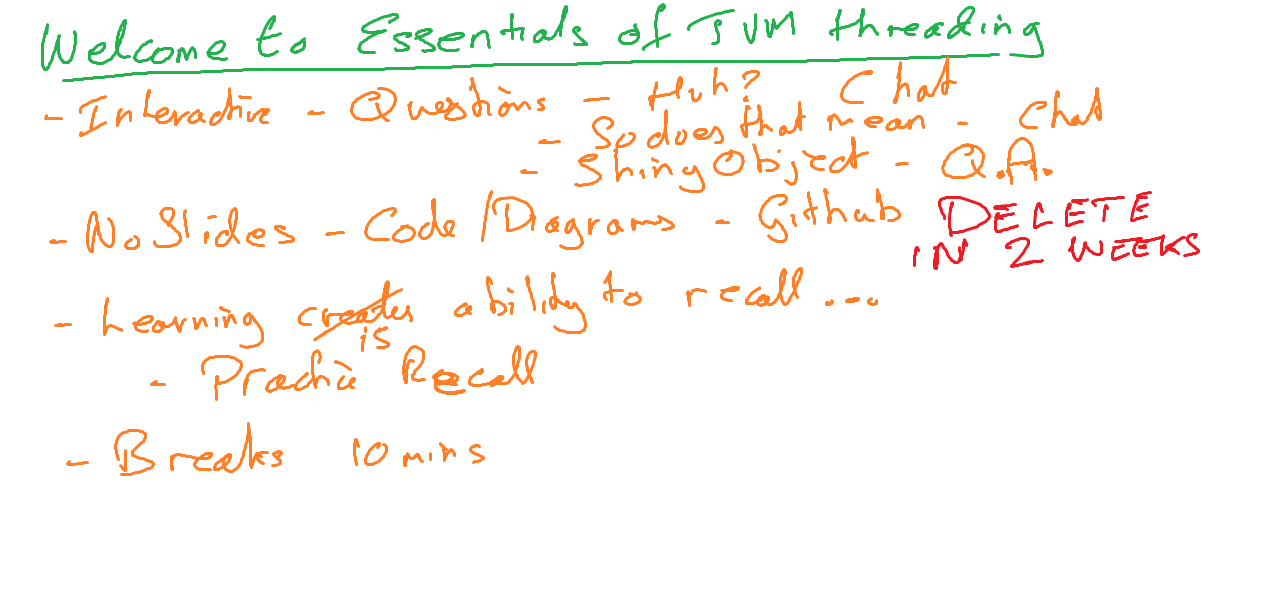 Welcome to Essentials of JVM threading
- Interactive - Questions - Huh? Chat
- So does that mean - Chat
- Shiny Object - Q.A.
- No Slides - Code / Diagrams - Github DELETE
IN 2 WEEKS
- Learning creates ability to recall ...
is
- Practice Recall
- Breaks 10 mins